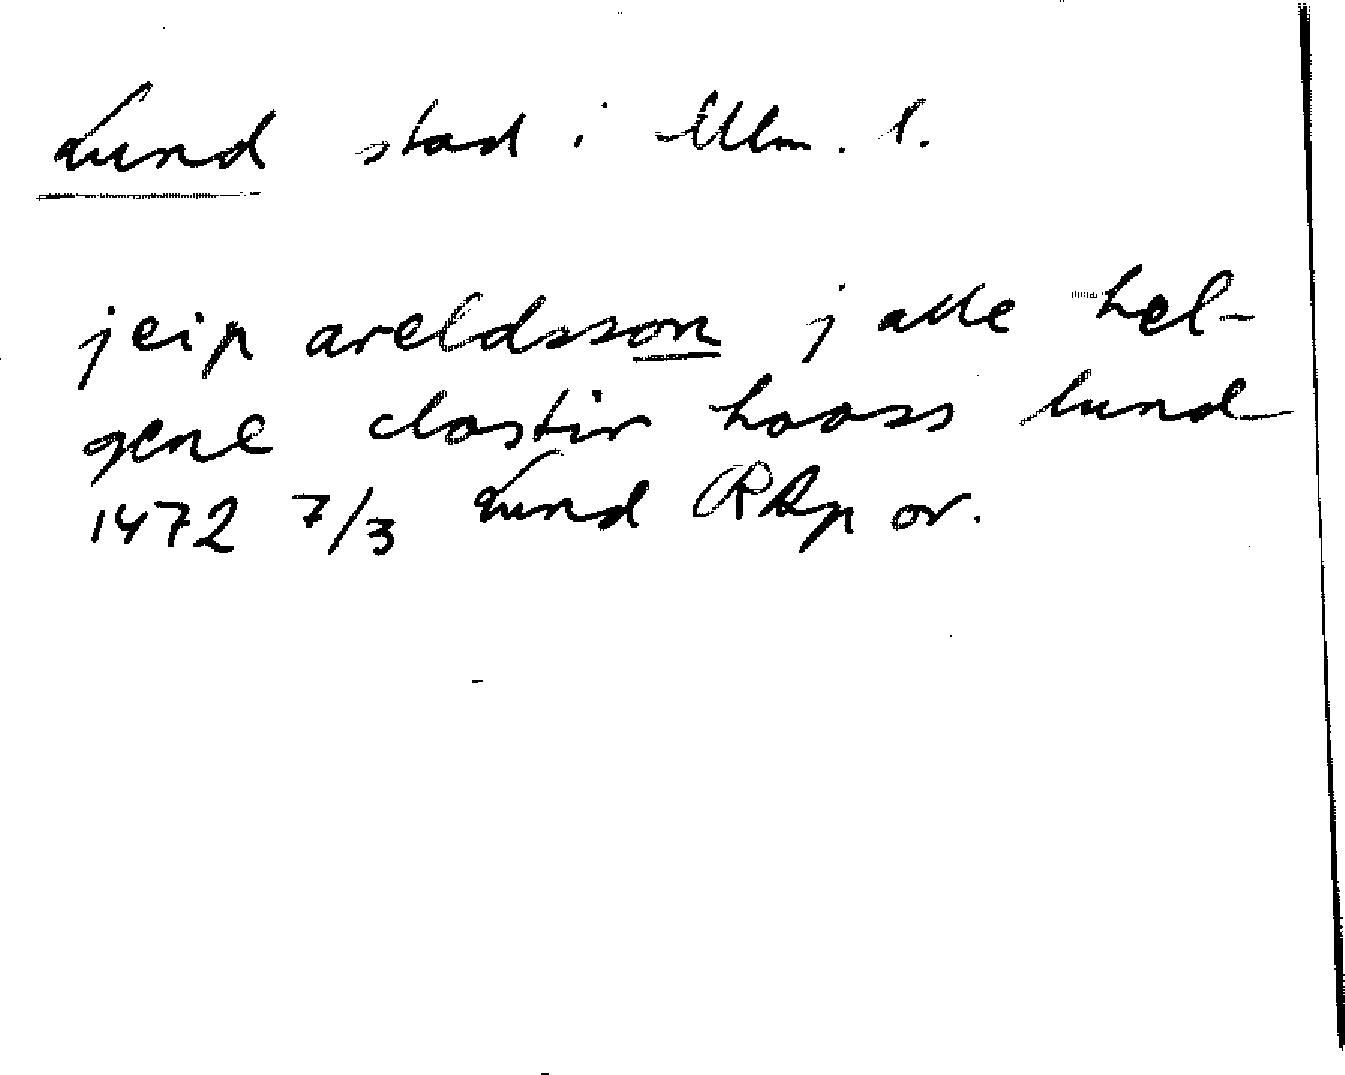 Lund stad i Mlm. l.
jeip areldsson j alle hel-
gene clostir hooss lund
1472 7/3 Lund RAp or.